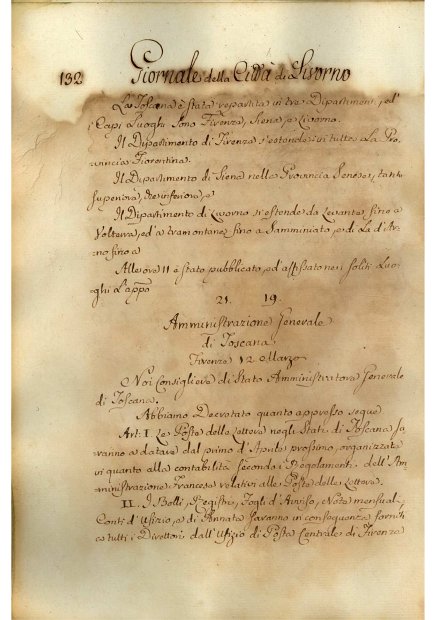 132 Giornale della Città di Livorno
La Toscana è stata repartita in tre Dipartimenti, ed'
i Capi Luoghi sono Firenze, Siena, e Livorno.
Il Dipartimento di Firenze s'estende in tutta La Pro-
vincia Fiorentina.
Il Dipartimento di Siena nella Provincia Senese, tanto
superiore, che inferiore, e
Il Dipartimento di Livorno si estende da Levante fino a
Volterra, ed'a tramontana fino a Samminiato, e di La d'Ar-
no fino a
Alle ore 11 è stato pubblicato, ed'affissato nei soliti Luo-
ghi L'appo
21. 19.
Amministrazione Generale
di Toscana
Firenze 12 Marzo
Noi Consigliere di Stato Amministratore Generale
di Toscana.
Abbiamo Decretato quanto appresso segue
Art: I. Le Poste delle Lettere negli Stati di Toscana sa-
ranno a datare dal primo d'Aprile prossimo, organizzate
in quanto alla contabilità secondo i Regolamenti dell'Am-
ministrazione Francese relativi alle Poste delle Lettere.
II. I Bolli, Registri, Fogli d'Avviso, Note mensuali,
Conti d'Ufizio, e di Annata saranno in conseguenza forniti
a tutti i Direttori dall'Ufizio di Posta Centrale di Firenze